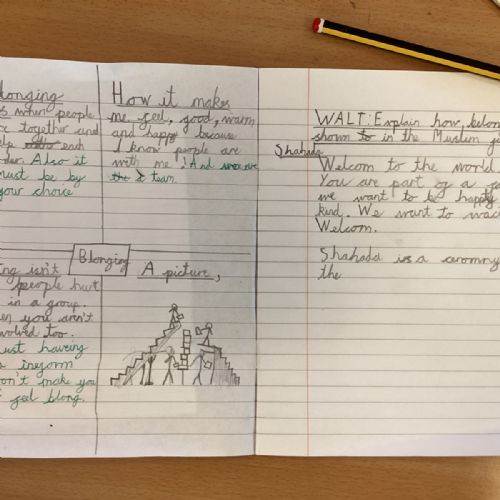 longing
s when people
together and
help each
other. Also it
must be by
your choice
How it makes
me feel, good, warm
and happy because
I know people are
with me! And we're
the team.
Blonging
ing isn't
people hurt
in a group.
en you aren't
volved too.
ust haveing
a inform
on't make you
feel blong.
A picture,
WALT: Explain how belon
shown to in the Muslim
Shahada
Welcom to the world
You are part of a
we want to be happy
kind. We want to
Welcom.
Shahada is a ceromny
the